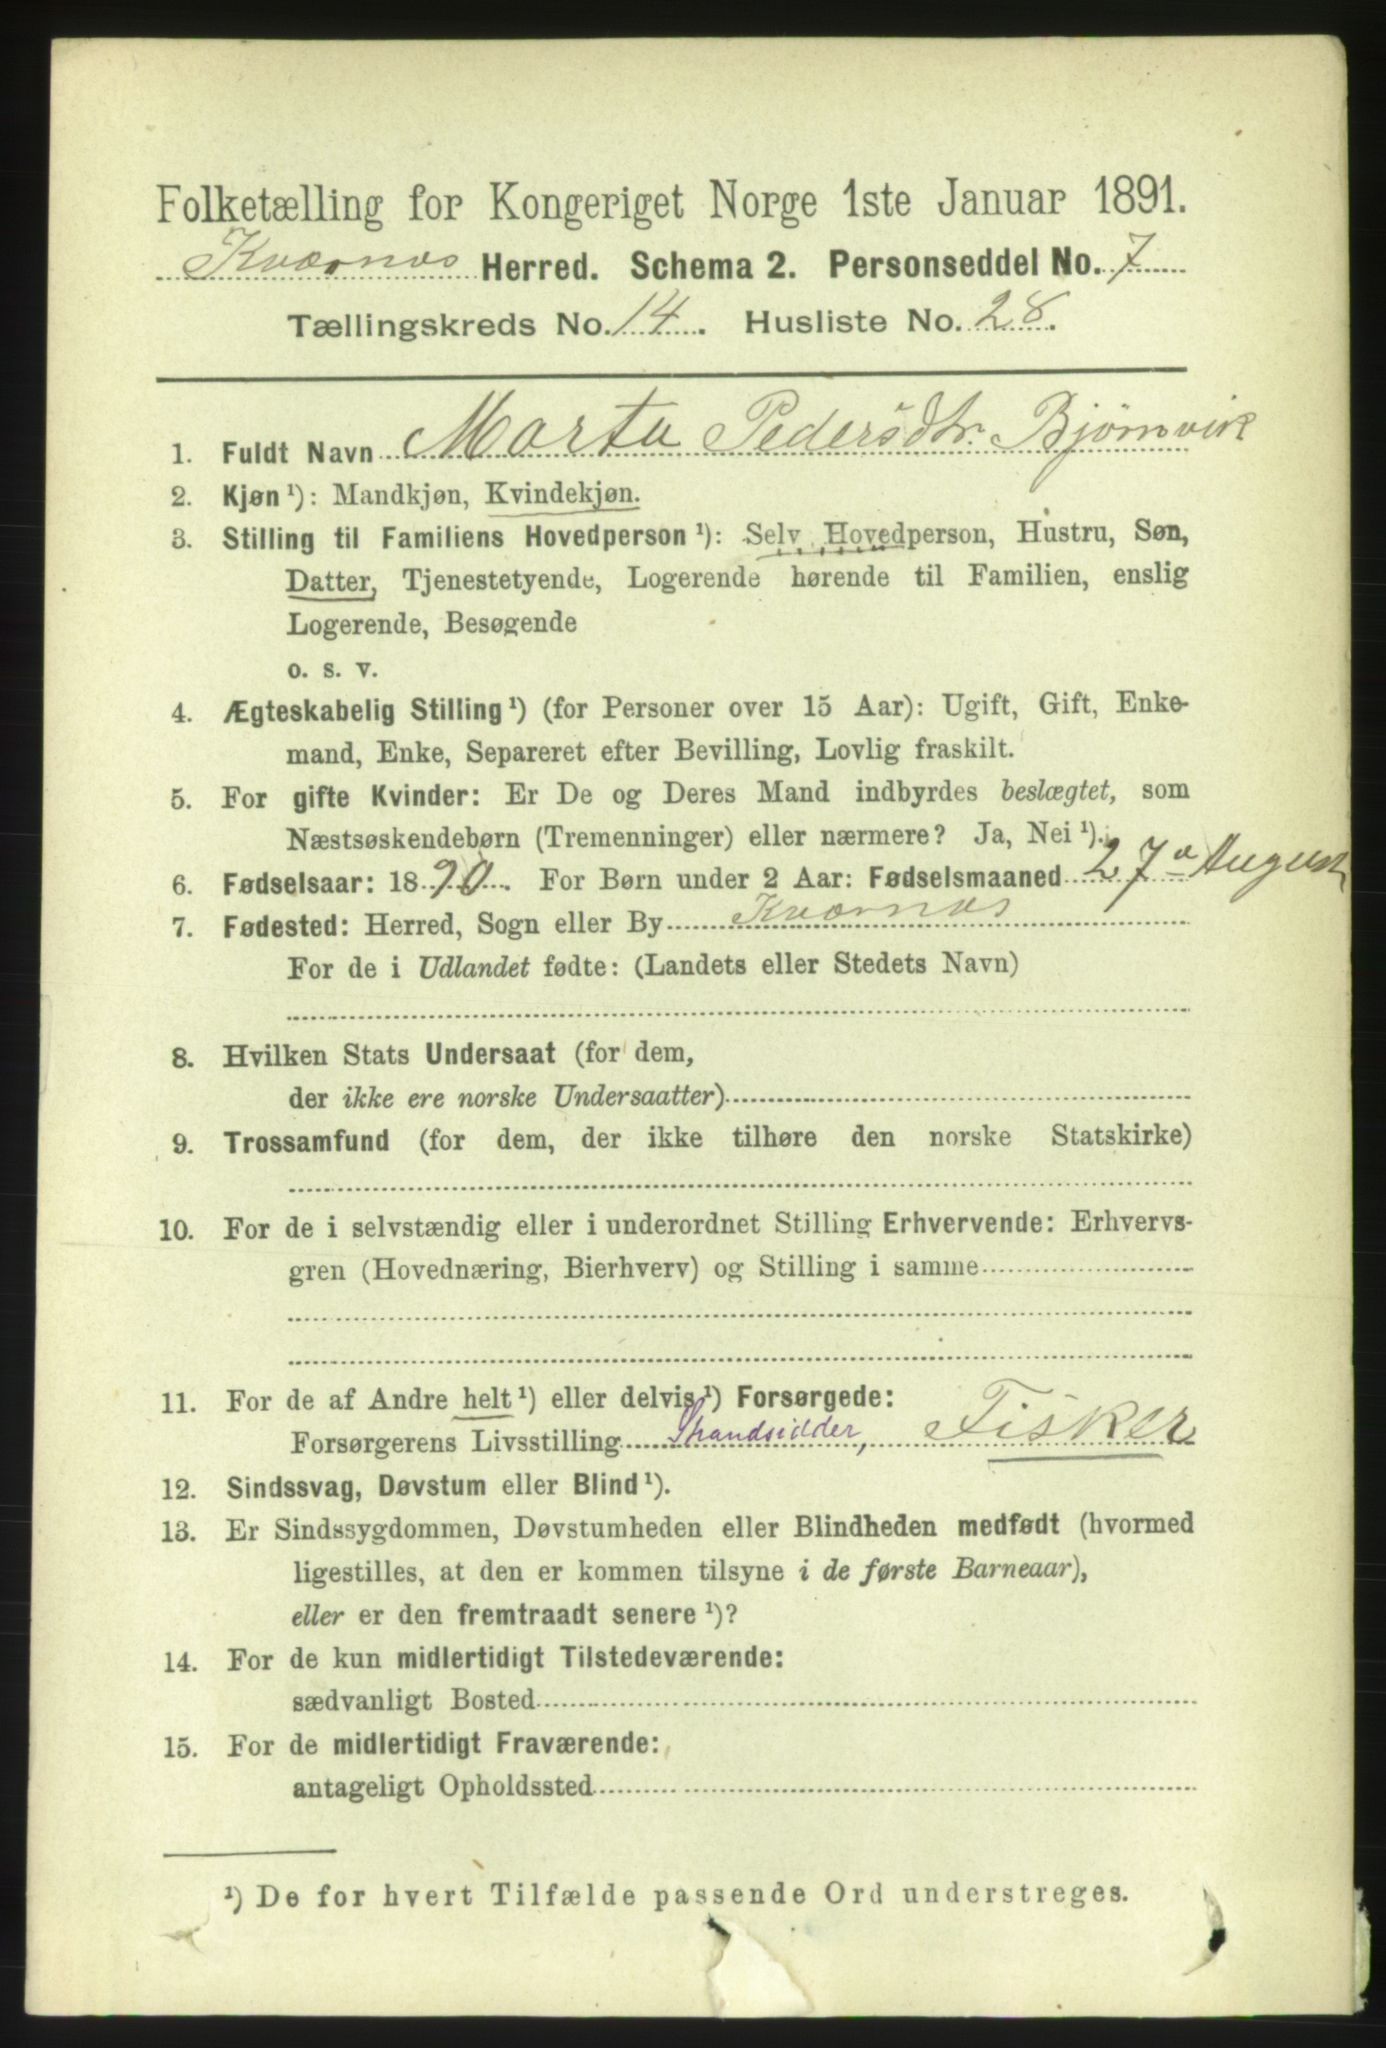 Folketælling for Kongeriget Norge 1ste Januar 1891.
Kværnæs Herred. Schema 2. Personseddel No. 7
Tællingskreds No. 14. Husliste No. 28.
1. Fuldt Navn Marta Pedersdtr. Bjørnvik
2. Kjøn ¹): Mandkjøn, Kvindekjøn.
3. Stilling til Familiens Hovedperson ¹): Selv Hovedperson, Hustru, Søn,
Datter, Tjenestetyende, Logerende hørende til Familien, enslig
Logerende, Besøgende
o. s. v.
4. Ægteskabelig Stilling ¹) (for Personer over 15 Aar): Ugift, Gift, Enke-
mand, Enke, Separeret efter Bevilling, Lovlig fraskilt.
5. For gifte Kvinder: Er De og Deres Mand indbyrdes beslægtet, som
Næstsøskendebørn (Tremenninger) eller nærmere? Ja, Nei ¹).
6. Fødselsaar: 1890. For Børn under 2 Aar: Fødselsmaaned 27de August
7. Fødested: Herred, Sogn eller By Kværnæs
For de i Udlandet fødte: (Landets eller Stedets Navn)
8. Hvilken Stats Undersaat (for dem,
der ikke ere norske Undersaatter)
9. Trossamfund (for dem, der ikke tilhøre den norske Statskirke)
10. For de i selvstændig eller i underordnet Stilling Erhvervende: Erhvervs-
gren (Hovednæring, Bierhverv) og Stilling i samme
11. For de af Andre helt ¹) eller delvis ¹) Forsørgede:
Forsørgerens Livsstilling Strandsidder, Fisker
12. Sindssvag, Døvstum eller Blind ¹).
13. Er Sindssygdommen, Døvstumheden eller Blindheden medfødt (hvormed
ligestilles, at den er kommen tilsyne i de første Barneaar),
eller er den fremtraadt senere ¹)?
14. For de kun midlertidigt Tilstedeværende:
sædvanligt Bosted
15. For de midlertidigt Fraværende:
antageligt Opholdssted
¹) De for hvert Tilfælde passende Ord understreges.